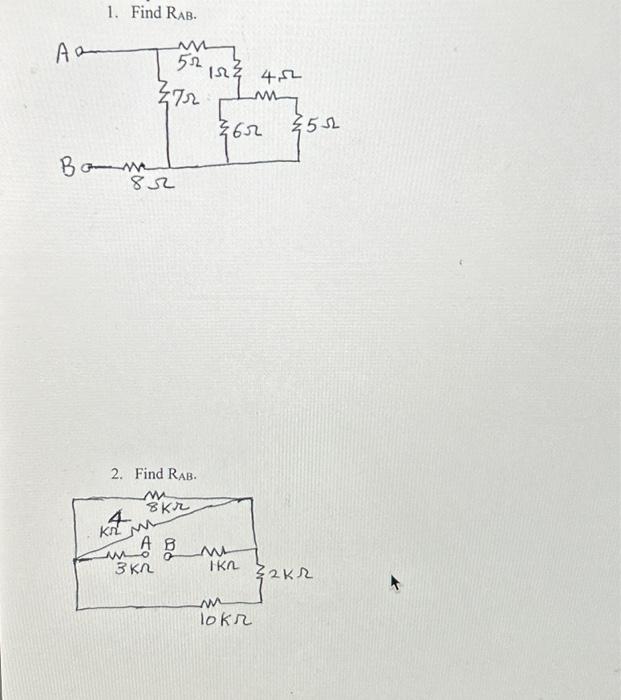 1. Find RAB.
A
5Ω
1Ω
4Ω
7Ω
6Ω
5Ω
B
8Ω
2. Find RAB.
8KΩ
4
KΩ
A B
3KΩ
1KΩ
2KΩ
10KΩ